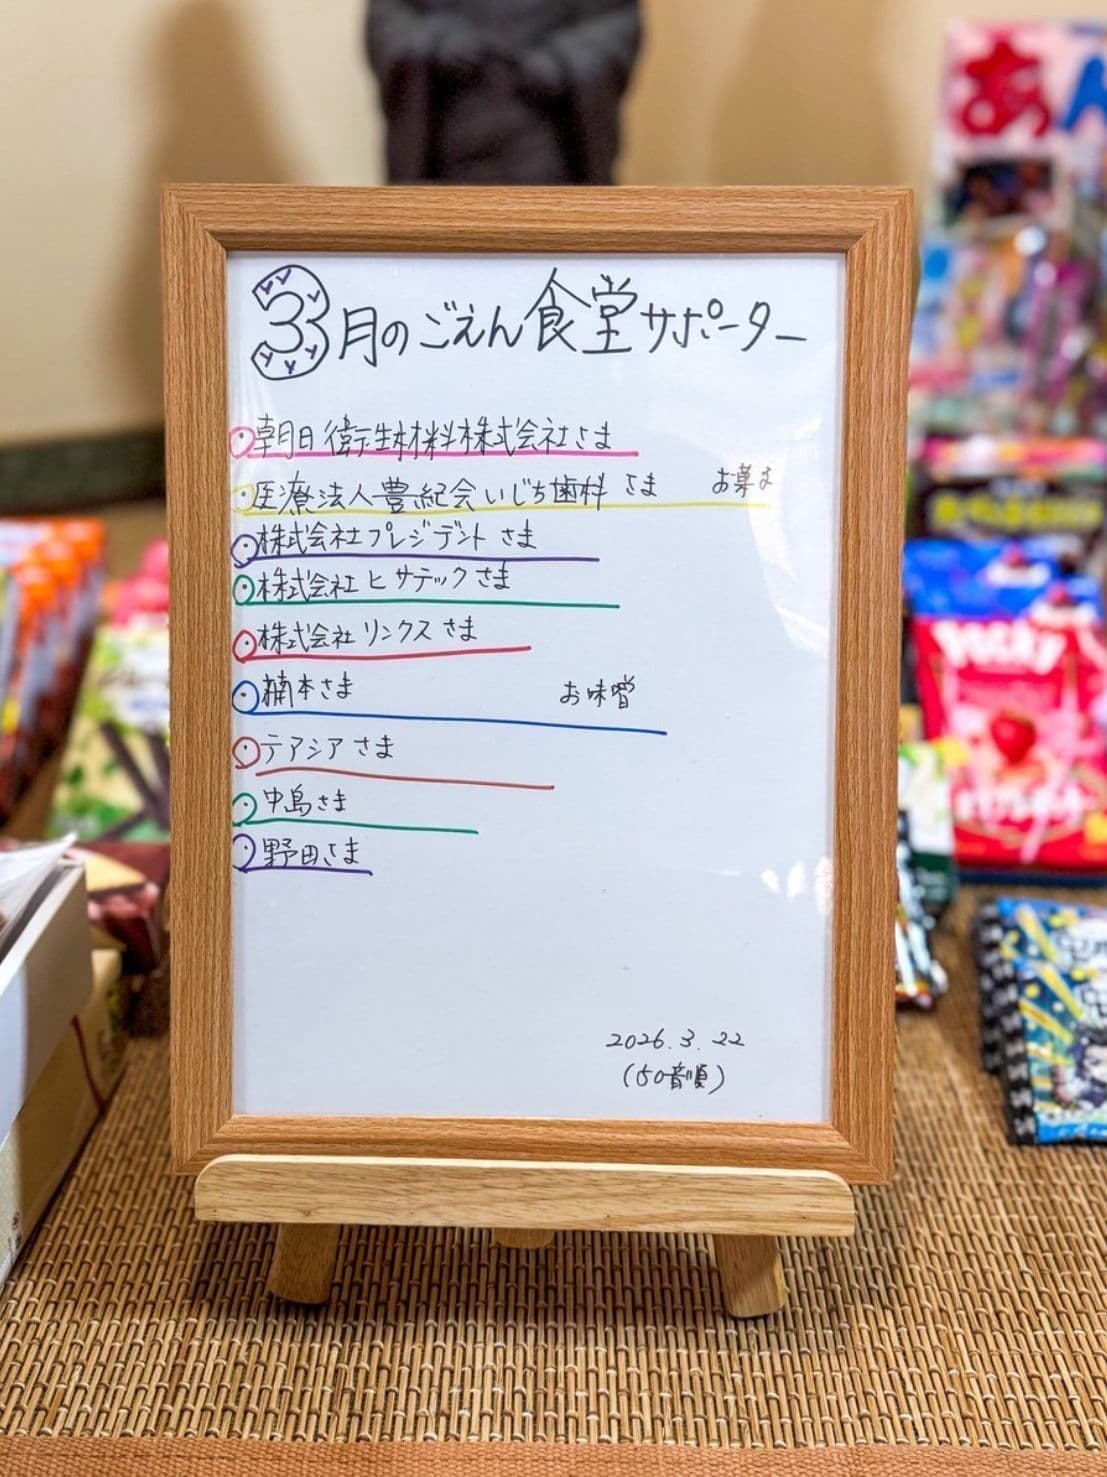 3月のごえん食堂サポーター
朝日衛生材料株式会社さま
医療法人豊紀会いじち歯科 さま お菓子
株式会社プレジデント さま
株式会社ヒサテックさま
株式会社リンクス さま
楠本さま お味噌
テアシア さま
中島さま
野田さま
2026.3.22
(50音順)
あん
Pocky